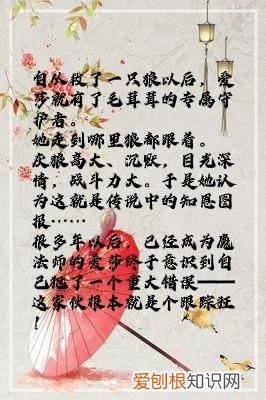 自从救了一只狼以后，爱
莎就有了毛茸茸的专属守
护者。
她走到哪里狼都跟着。
灰狼高大、沉默，目光深
情，战斗力大。于是她认
为这就是传说中的知恩图
报……
很多年以后，已经成为魔
法师的爱莎终于意识到自
己犯了一个重大错误——
这家伙根本就是个跟踪狂
！
爱刨根知识网